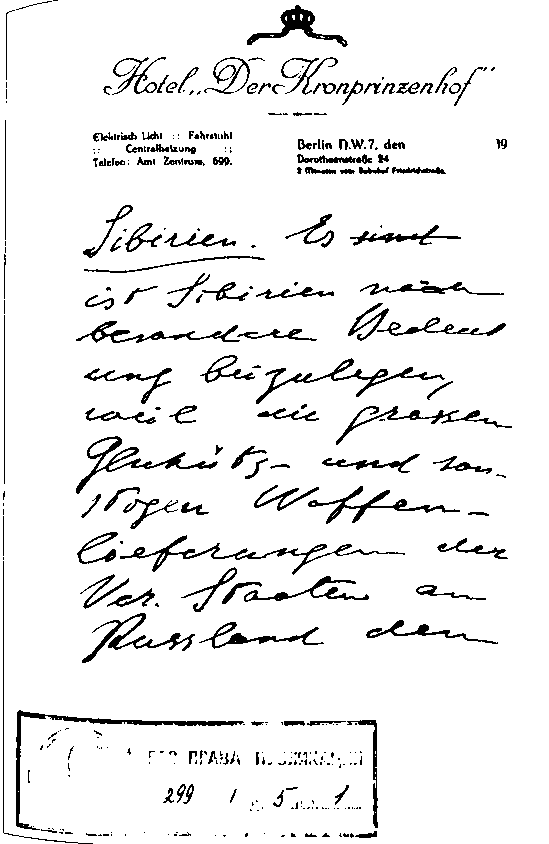 Hotel „Der Kronprinzenhof“
Elektrisch Licht :: Fahrstuhl
:: Centralheizung ::
Telefon: Amt Zentrum, 699.
Berlin N.W.7, den 19
Dorotheenstraße 24
2 Minuten vom Bahnhof Friedrichstraße.
Sibirien. Es sind
ist Sibirien noch
besondere Bedeut
ung beizulegen,
weil die grossen
Geschütz- und son-
stigen Waffen-
lieferungen der
Ver. Staaten an
Russland den
БЕЗ ПРАВА ПУБЛИКАЦИИ
299 1 5 1